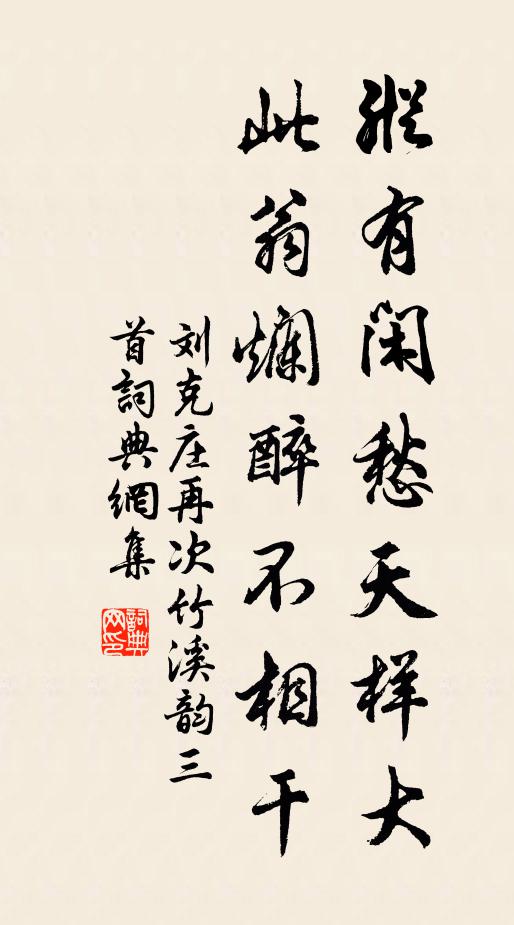 縱有閑愁天样大
此翁爛醉不相干
刘克庄再次竹溪韵三
首詞典網集
詞典
网印